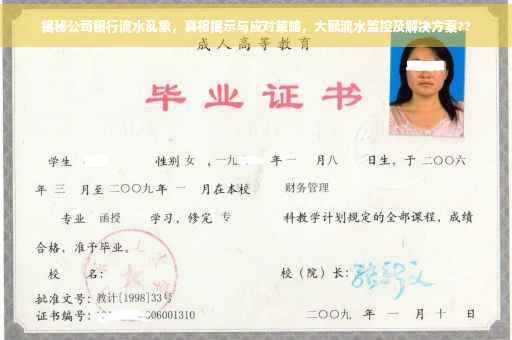 揭秘公司银行流水乱象，真相揭示与应对策略，大额流水监控及解决方案??
成人高等教育
毕业证书
学生 性别 女 ，一九 年一 月八 日生，于二〇〇六
年 三 月至二〇〇九年 一 月在本校 财务管理
专业 函授 学习，修完 专 科教学计划规定的全部课程，成绩
合格，准予毕业。
校 名： 校（院）长：
批准文号：教计[1998]33号
证书编号： 06001310 二〇〇九 年 一 月 十 日